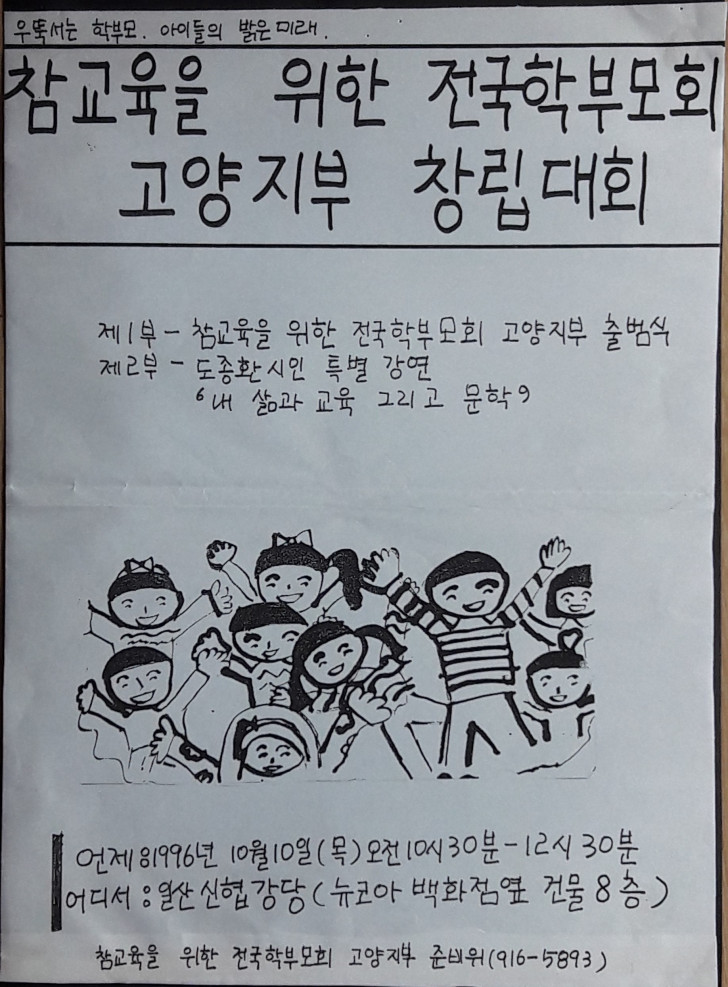 우뚝서는 학부모. 아이들의 밝은미래.
참교육을 위한 전국학부모회
고양지부 창립대회
제1부 - 참교육을 위한 전국학부모회 고양지부 출범식
제2부 - 도종환시인 특별 강연
‘내 삶과 교육 그리고 문학’
언제 : 1996년 10월10일(목) 오전10시30분-12시 30분
어디서 : 일산 신협강당 (뉴코아 백화점옆 건물 8층)
참교육을 위한 전국학부모회 고양지부 준비위(916-5893)